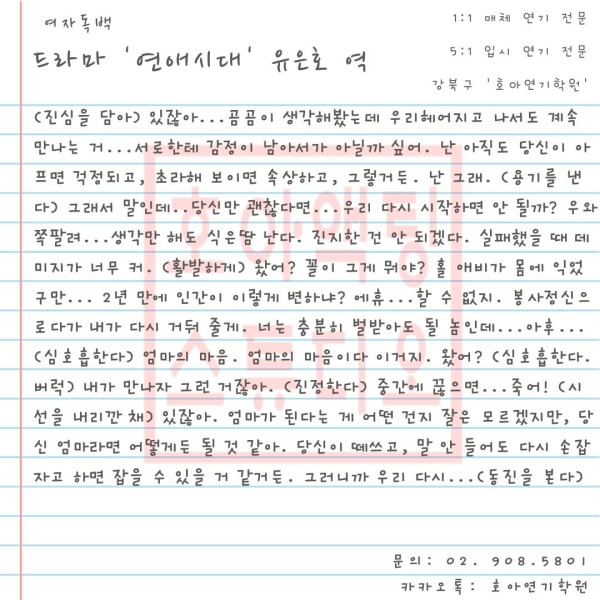 여자독백
1:1 매체 연기 전문
드라마 '연애시대' 유은호 역
5:1 입시 연기 전문
강북구 '호아연기학원'
(진심을 담아) 있잖아...곰곰이 생각해봤는데 우리헤어지고 나서도 계속
만나는 거...서로한테 감정이 남아서가 아닐까 싶어. 난 아직도 당신이 아
프면 걱정되고, 초라해 보이면 속상하고, 그렇거든. 난 그래. (용기를 낸
다) 그래서 말인데..당신만 괜찮다면...우리 다시 시작하면 안 될까? 우와
쪽팔려...생각만 해도 식은땀 난다. 진지한 건 안 되겠다. 실패했을 때 데
미지가 너무 커. (활발하게) 왔어? 꼴이 그게 뭐야? 홀 애비가 몸에 익었
구만... 2년 만에 인간이 이렇게 변하냐? 에휴...할 수 없지. 봉사정신으
로다가 내가 다시 거둬 줄게. 너는 충분히 벌받아도 될 놈인데...아후...
(심호흡한다) 엄마의 마음. 엄마의 마음이다 이거지. 왔어? (심호흡한다.
버럭) 내가 만나자 그런 거잖아. (진정한다) 중간에 끊으면...죽어! (시
선을 내리깐 채) 있잖아. 엄마가 된다는 게 어떤 건지 잘은 모르겠지만, 당
신 엄마라면 어떻게든 될 것 같아. 당신이 떼쓰고, 말 안 들어도 다시 손잡
자고 하면 잡을 수 있을 거 같거든. 그러니까 우리 다시...(동진을 본다)
호아액팅
스튜디오
문의: 02. 908.5801
카카오톡: 호아연기학원